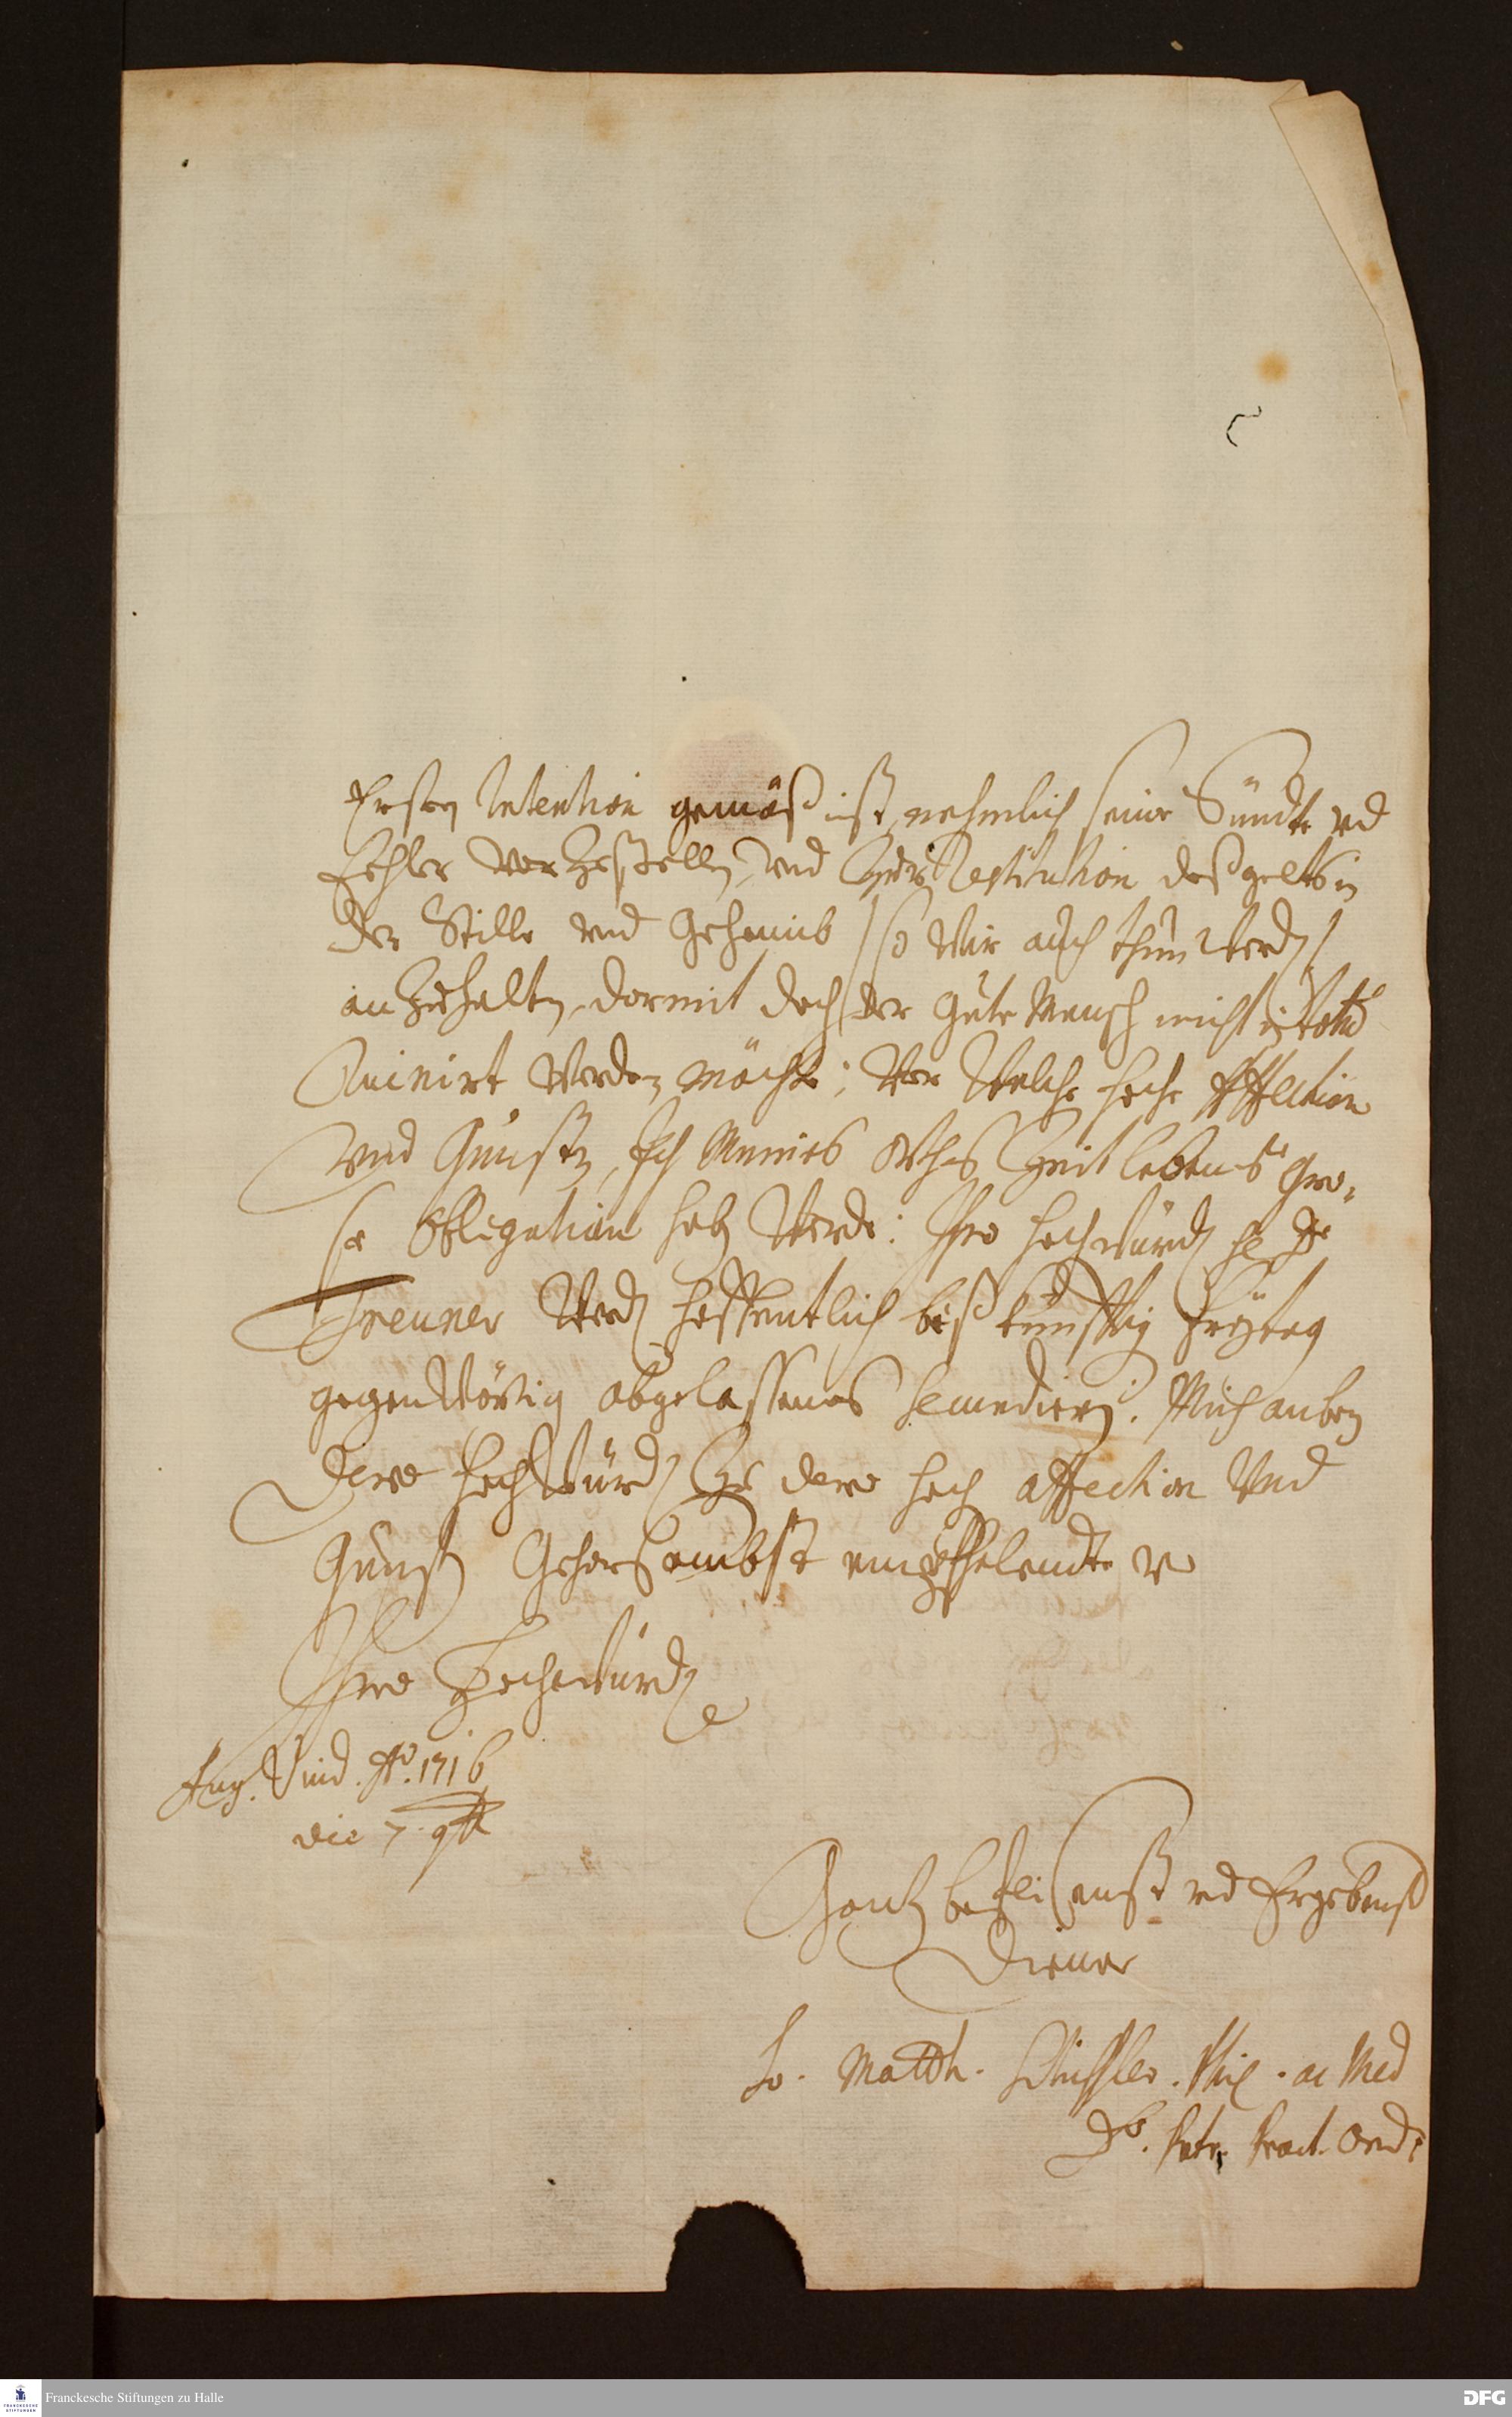 Ersten Intention gemäß ist, nehmlich seine Sündte vnd
Fehler vorzustellen, vnd zur Restitution deß gelts in
der Stille vnd Geheimb / so Wir auch thun Werd /
anzuhalten, darmit doch der gute Mensch nicht in totu
Ruinirt Werden möchte; Vor Welche hohe Affection
vnd Gunsten, Ich Meines Orths Zeit lebens gro„
se Obligation haben Werde: Ihro Hochwürd H
Treuner Werd hoffentlich biß künfftig Freytag
gegenwörtig abgelassenes. Mich anbey
Dero Hochwürd zu dero hoch affection Vnd
Gunst Gehorsambst empffelendte
Ihro Hochwürd
Aug. Vind. Ao. 1716
die 7 9br
Gantz beflisenst vnd Ergebenst
Diener
Jo. Matth. Phil. ac Med
Dr. Pract. Ord.
Franckesche Stiftungen zu Halle
DFG